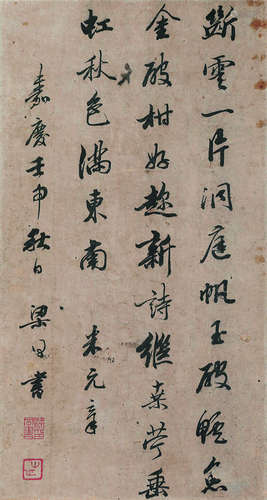 斷雲一片洞庭帆玉破鱸魚
金破柑好趂新詩繼桑苧垂
虹秋色滿東南 米元章
嘉慶壬申秋日 梁同書